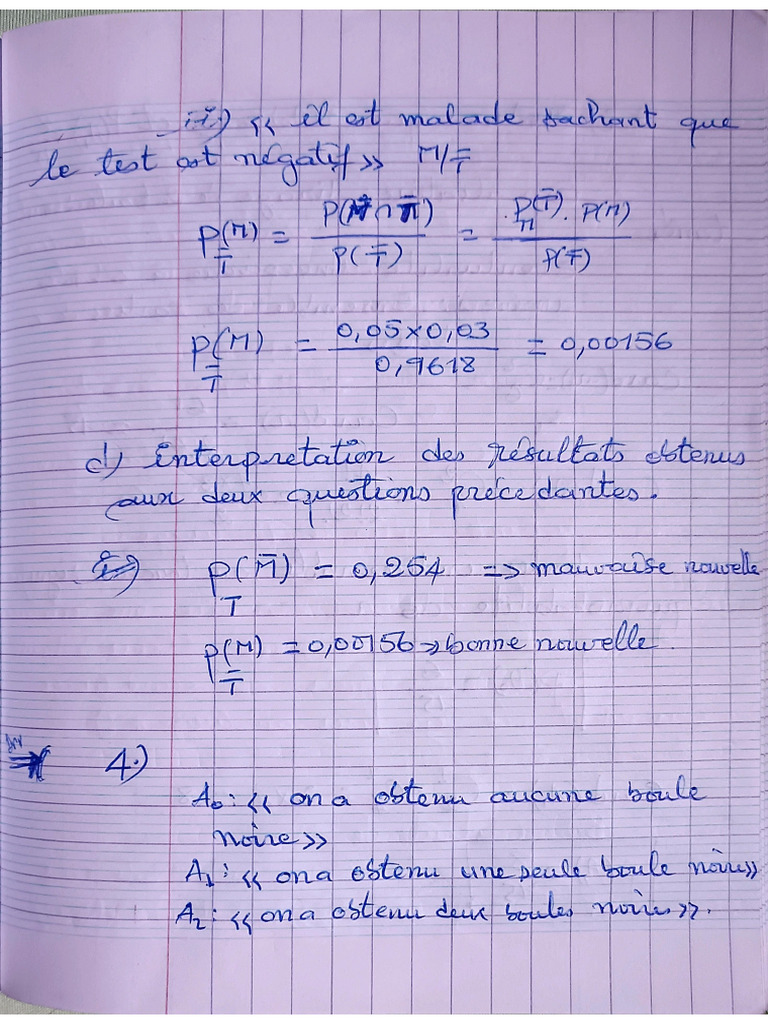 ii) << il est malade sachant que
le test est négatif >> M/T̄
P_T̄(M) = P(M∩T̄)/P(T̄) = P_M(T̄) . P(M)/P(T̄)
P_T̄(M) = 0,05×0,03/0,9618 = 0,00156
d) Interpretation des résultats obtenus
aux deux questions précedantes.
P_T(M̄) = 0,254 => mauvaise nouvelle
P_T̄(M) = 0,00156 => bonne nouvelle.
4.)
A₀ : << on a obtenu aucune boule
noire >>
A₁ : << on a obtenu une seule boule noire >>
A₂ : << on a obtenu deux boules noires >>.